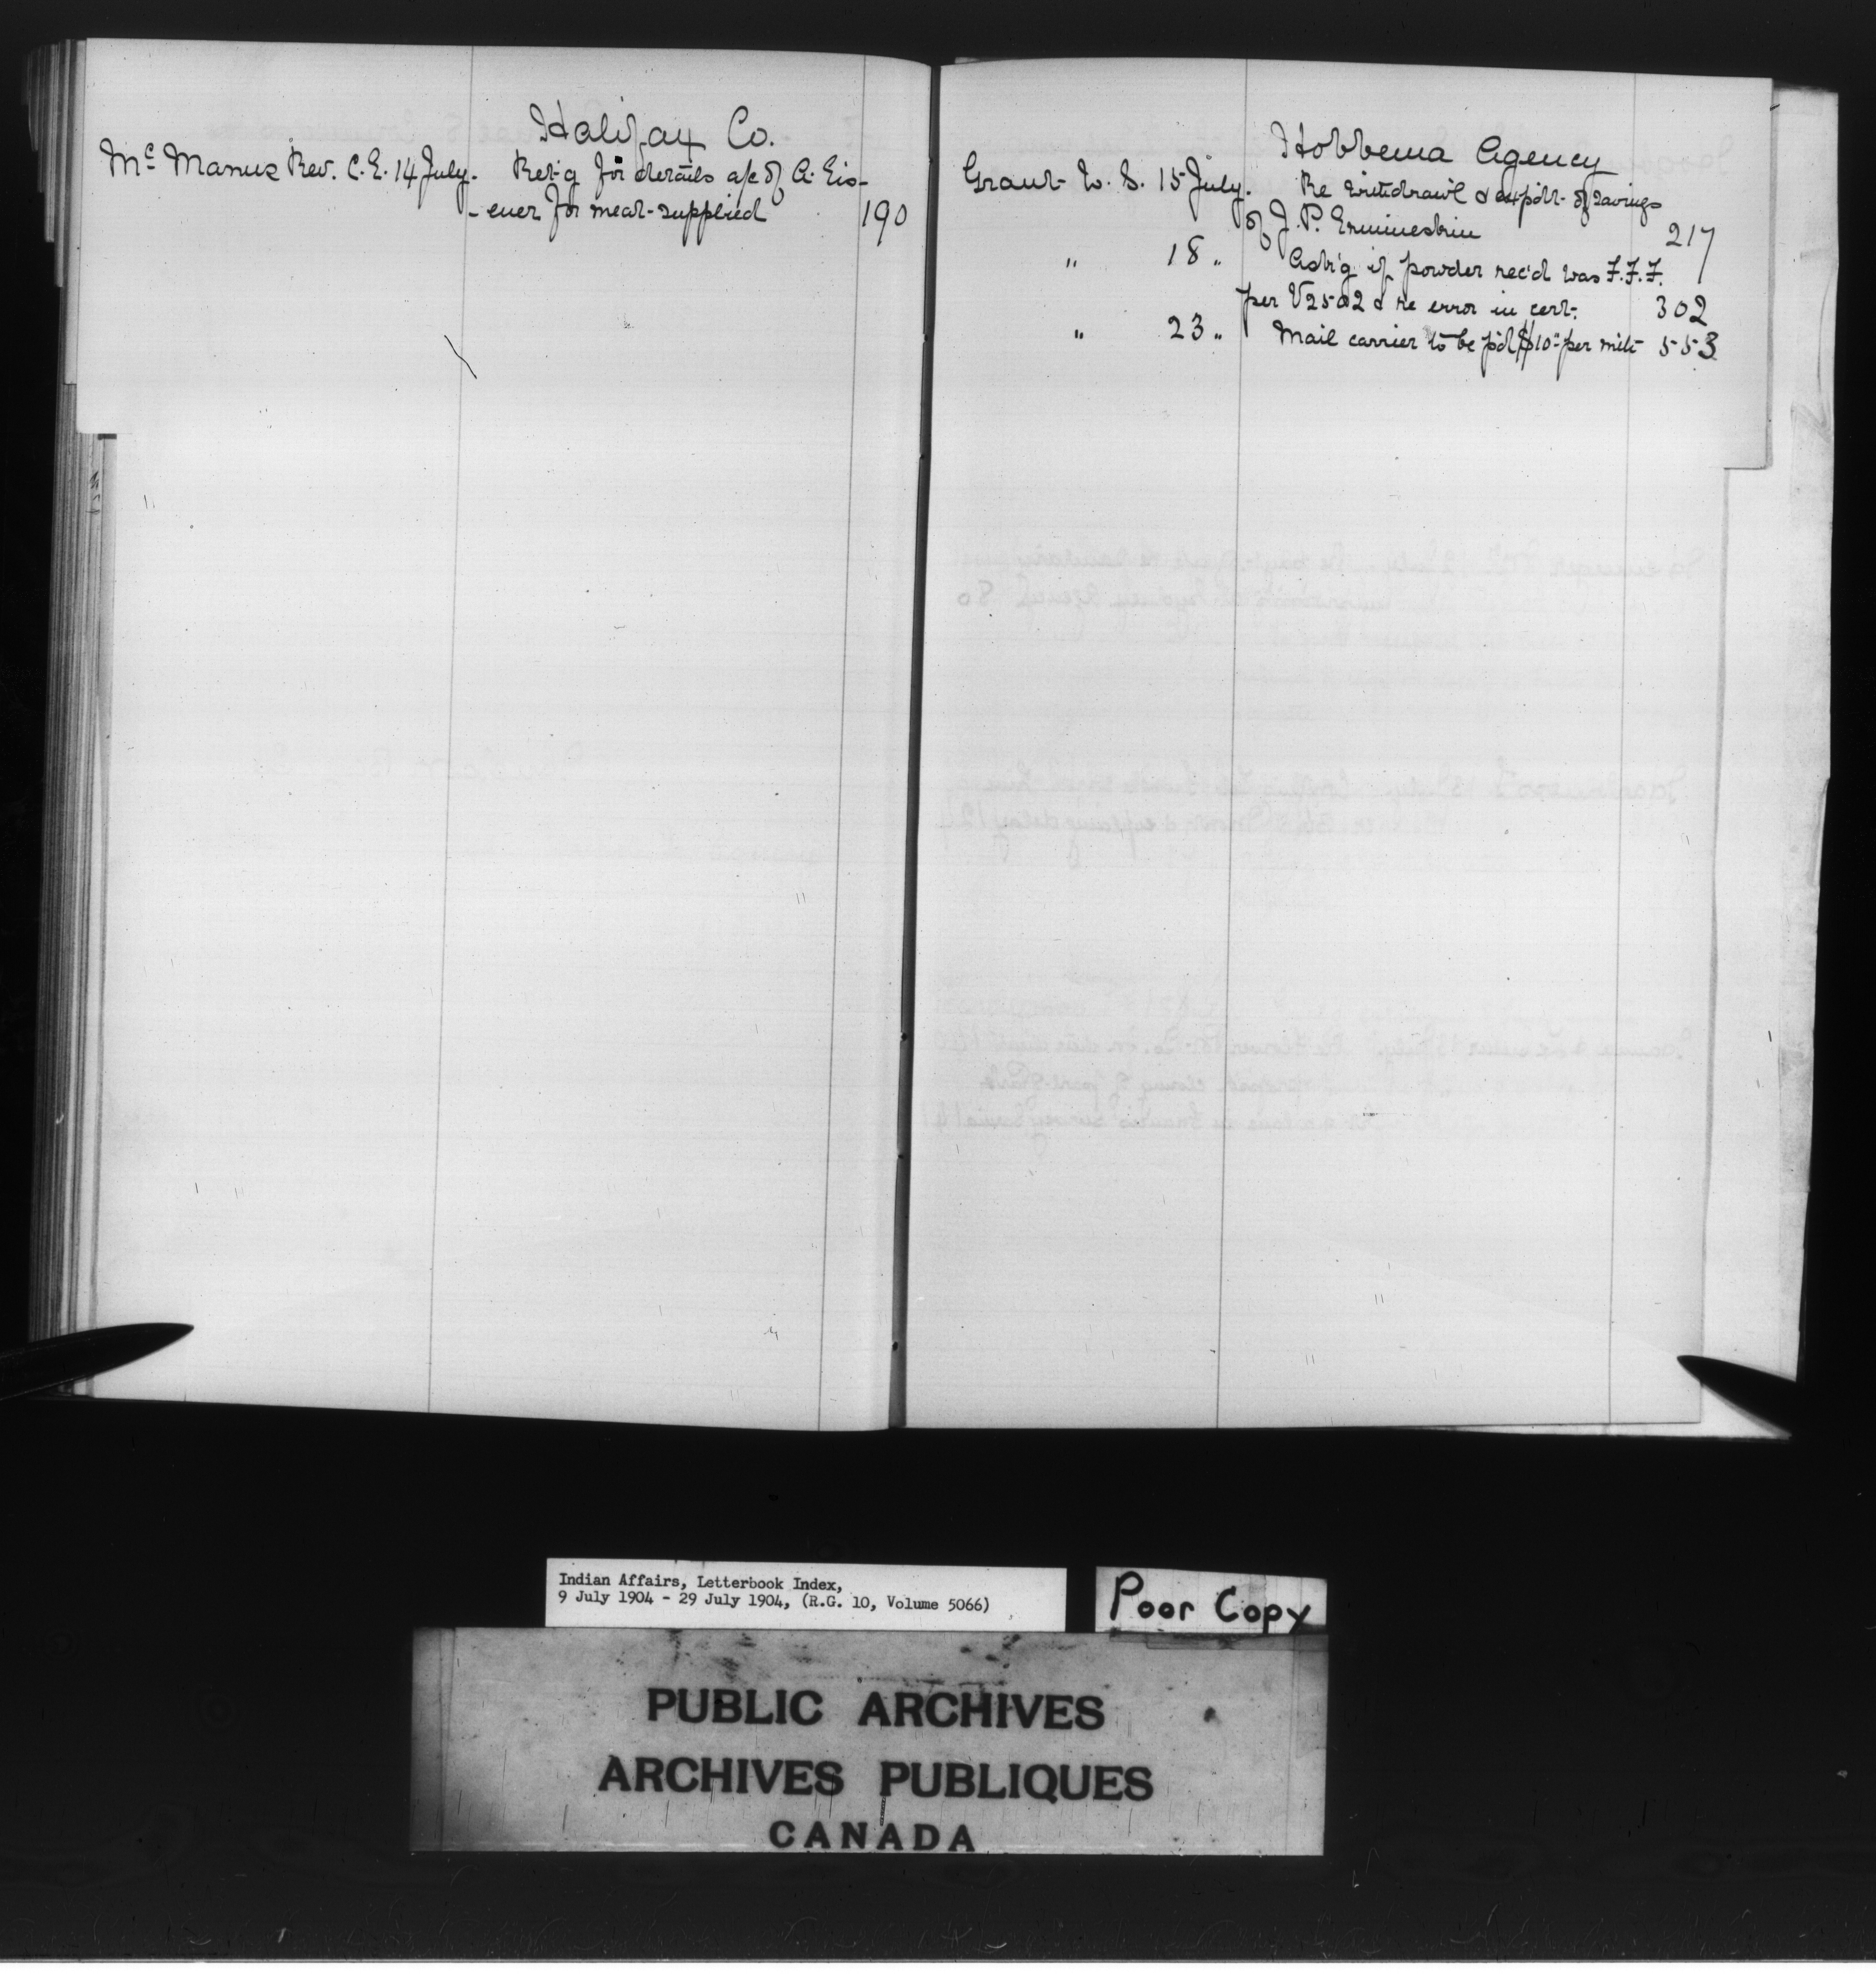 Halifax Co.
Mc Manus Rev. C.E. 14 July. Ret'g for details a/c of A. Eis-
-ener for meat supplied 190
Hobbema Agency
Grant W. S. 15 July. Re withdrawl & expdt. of savings
of J. P. Ermineskin 217
" 18 " Ask'g if powder rec'd was F.F.F.
per V2502 & re error in cert. 302
" 23 " Mail carrier to be p'd $10 per mile 553
Indian Affairs, Letterbook Index,
9 July 1904 - 29 July 1904, (R.G. 10, Volume 5066)
Poor Copy
PUBLIC ARCHIVES
ARCHIVES PUBLIQUES
CANADA